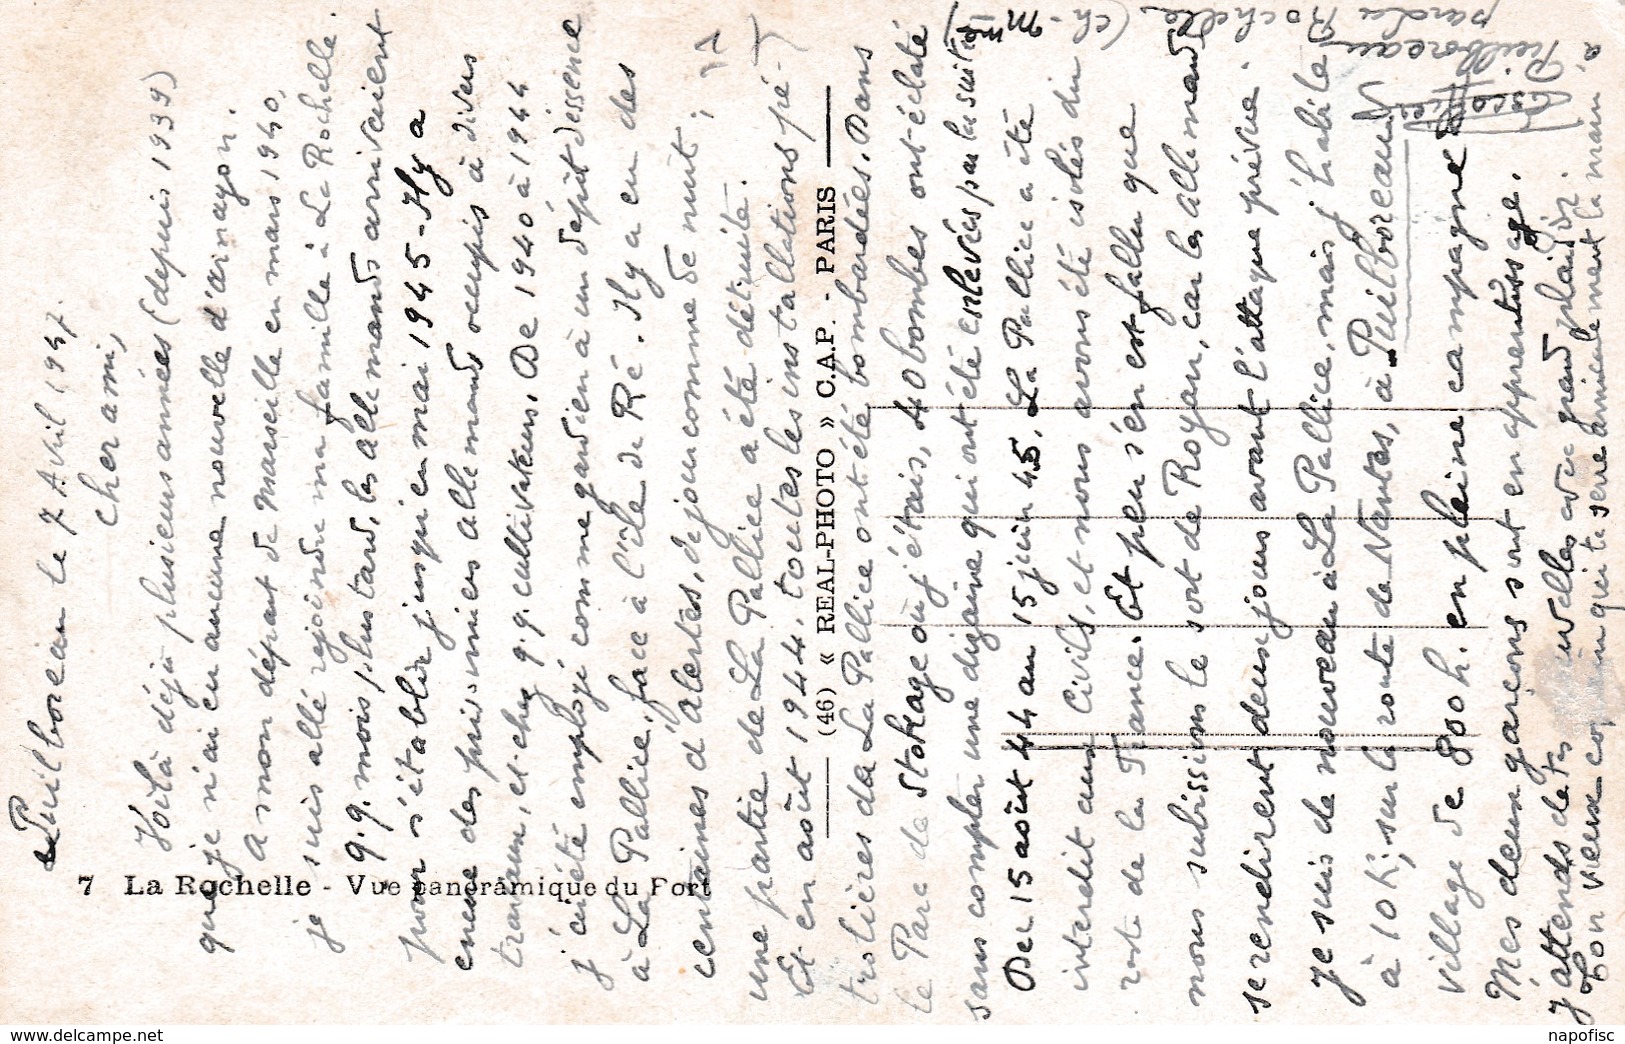 Puilboreau le 7 Avril 1947.
Cher ami,
Voilà déjà plusieurs années (depuis 1939)
que je n'ai eu aucune nouvelle d'
A mon départ de Marseille en mars 1940,
je suis allé rejoindre ma famille à La Rochelle.
q.q. mois plus tard, les allemands arrivaient
pour s'établir jusqu'en mai 1945 - Il y a
encore des prisonniers allemands occupés à divers
travaux, et chez q.q. cultivateurs. De 1940 à 1944
j'ai été employé comme gardien à un dépôt d'essence
à La Pallice, face à l'île de Ré. Il y a eu des
centaines d'alertes, de jour comme de nuit;
une partie de La Pallice a été détruite.
Et en août 1944, toutes les installations pé-
trolières de La Pallice ont été bombardées. Dans
le Parc de Stockage où j'étais, 40 bombes ont éclaté
sans compter une dizaine qui ont été enlevées par la suite
Du 15 août 44 au 15 juin 45, La Pallice a été
interdit aux civils, et nous avons été isolés du
reste de la France. Et peu s'en est fallu que
nous subissions le sort de Royan, car les allemands
se rendirent deux jours avant l'attaque prévue.
je suis de nouveau à La Pallice, mais j'habite
à 10 K; sur la route de Nantes, à Puilboreau
village de 800 h. en pleine campagne
Mes deux garçons sont en apprentissage.
J'attends de tes nouvelles avec grand plaisir.
Ton vieux copain qui te serre amicalement la main
Puilboreau
par La Rochelle (Ch. Mme)
7 La Rochelle - Vue panoramique du Port
(46) « REAL-PHOTO » C.A.P. - PARIS
www.delcampe.net
napofisc